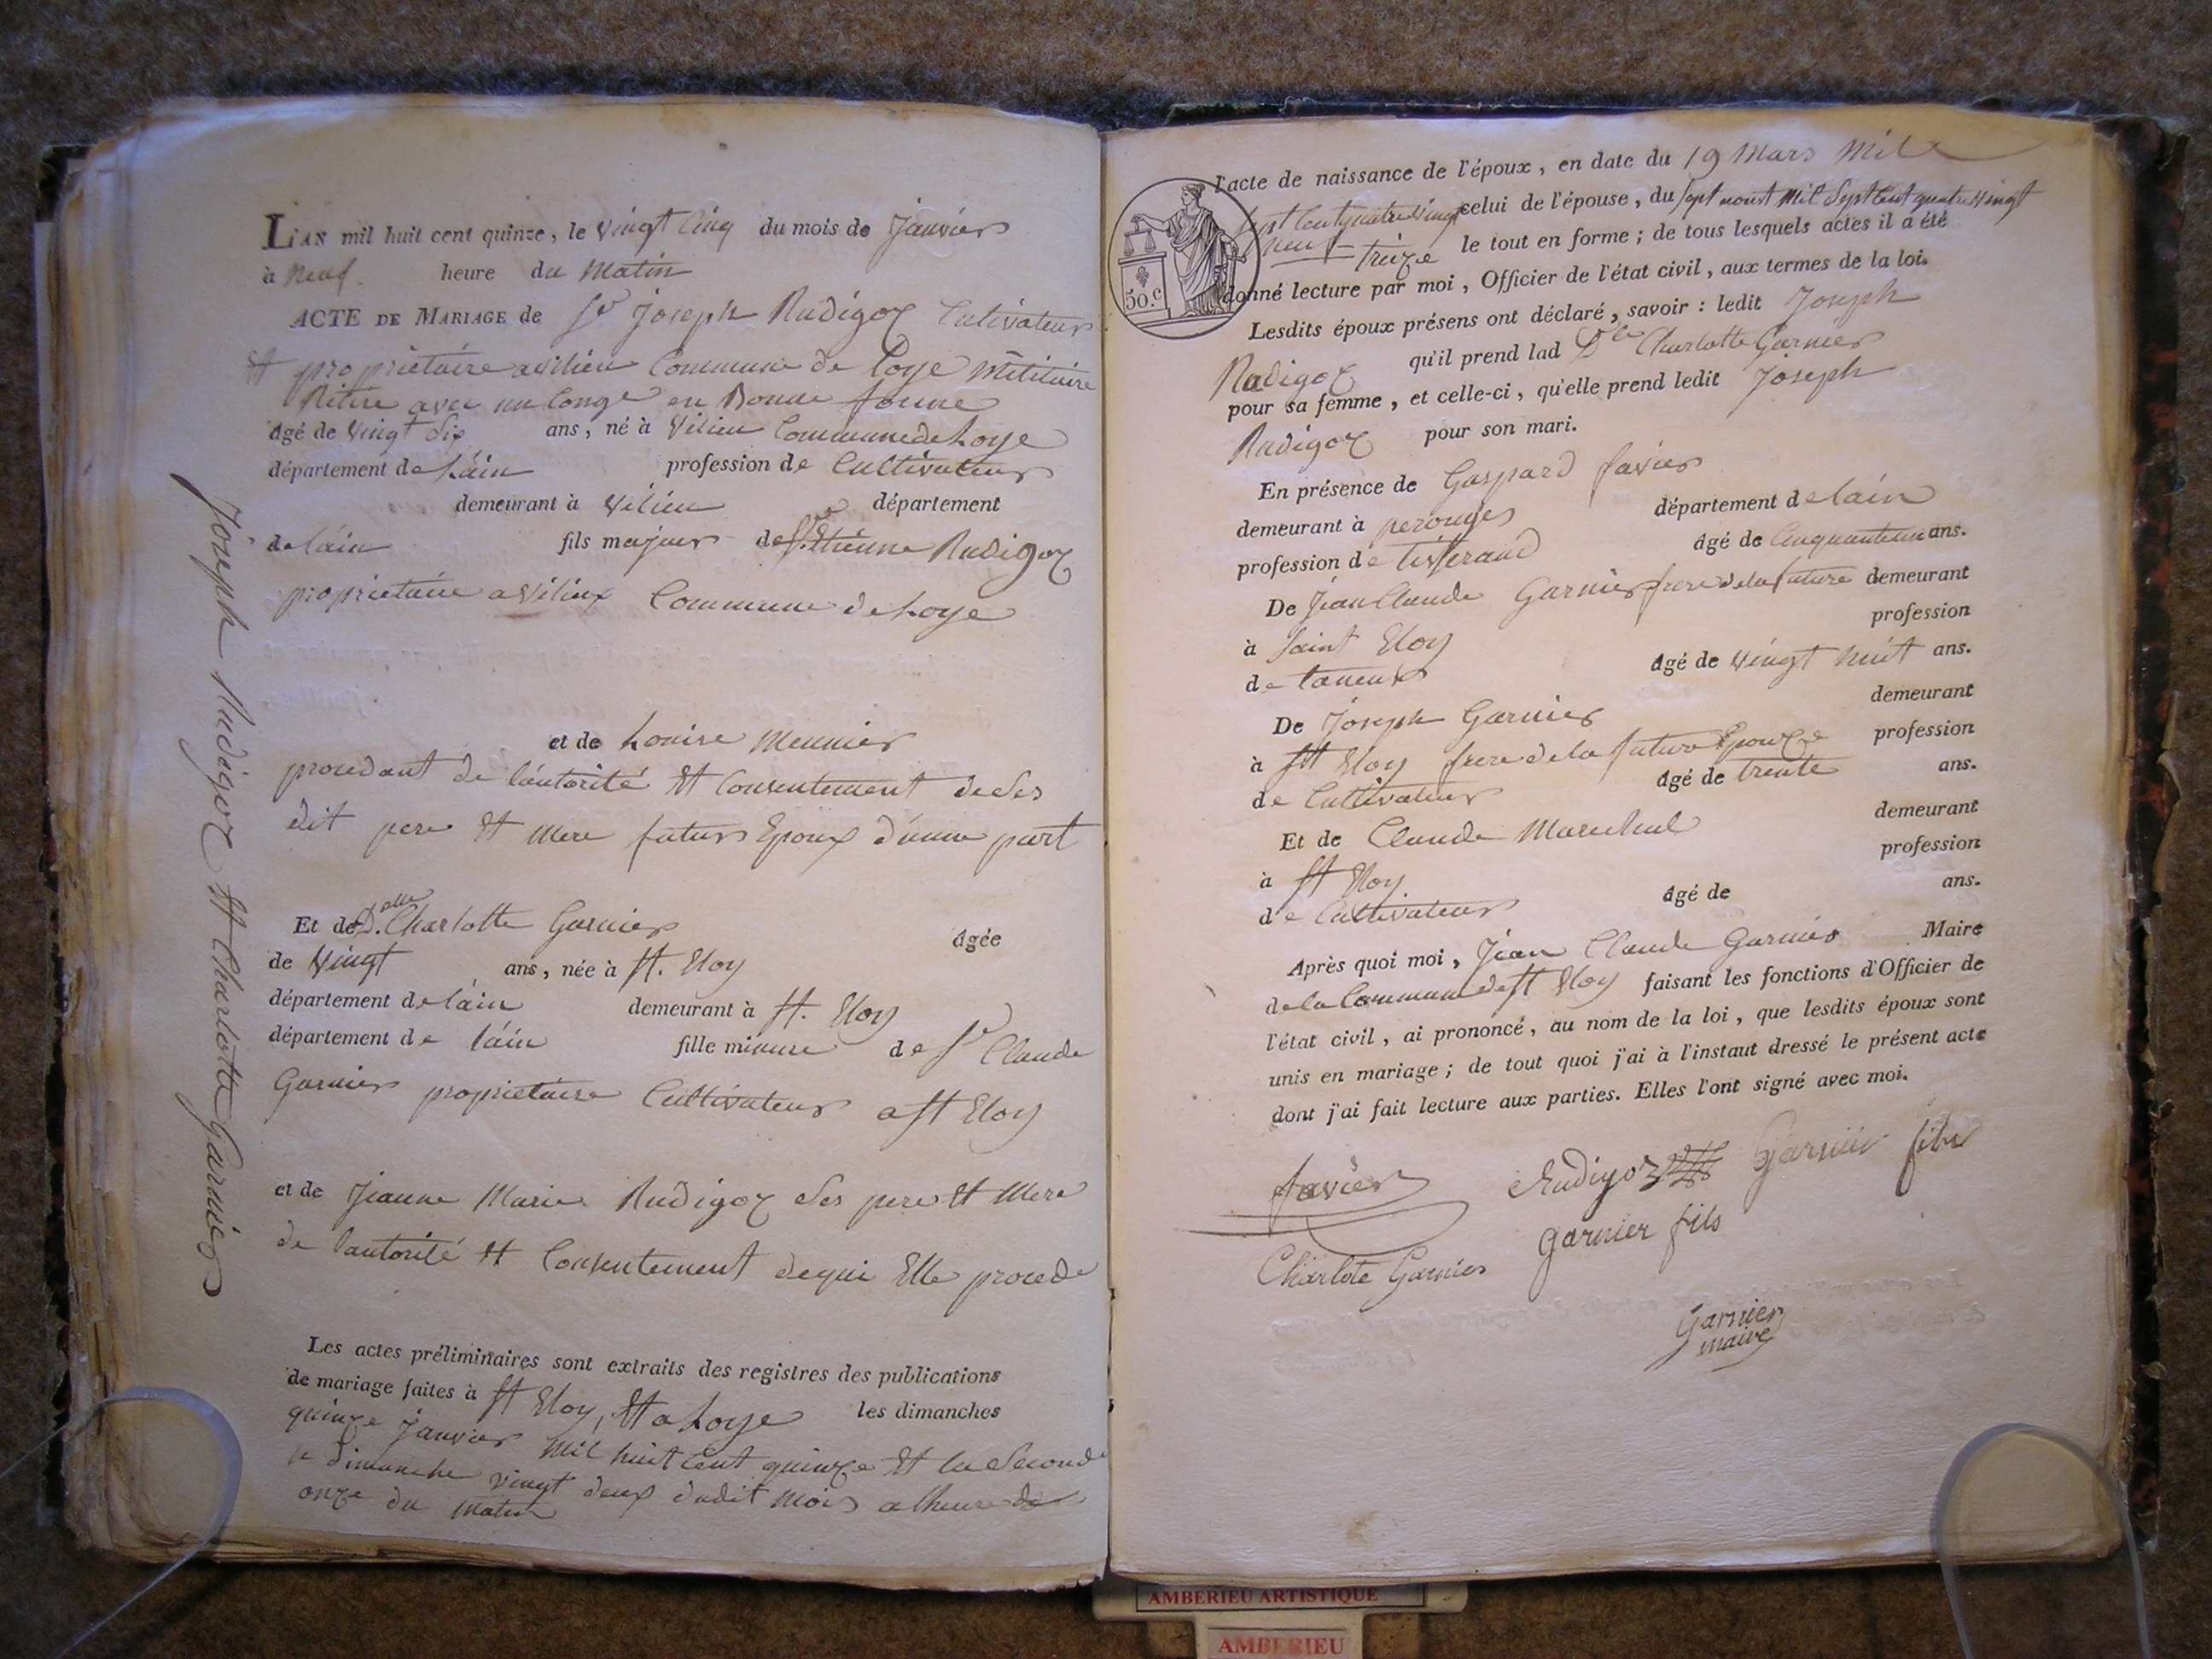 L'AN mil huit cent quinze, le vingt Cinq du mois de Janvier
à neuf heure du matin
ACTE DE MARIAGE de Sr Joseph Rudigoz Cultivateur
Et proprietaire a Vilieu Commune de Loye militaire
Retire avec un Congé en Bonne forme
âgé de vingt Six ans, né à Vilieu Commune de Loye
département de láin profession de Cultivateur
demeurant à Vilieu département
de láin fils majeur de Sr. Etienne Rudigoz
proprietaire a Vilieux Commune de Loye
et de Louise Meunier
procedant de láutorité Et Consentement de Ses
dit pere Et Mere futur Epoux d'une part
Et de D.elle Charlotte Garnier âgée
de Vingt ans, née à St. Eloy
département de láin demeurant à St. Eloy
département de láin fille mineure de Sr Claude
Garnier proprietaire Cultivateur a St Eloy
et de Jeanne Marie Rudigoz Ses pere Et Mere
de lautorité Et Consentement de qui Elle procede
Les actes préliminaires sont extraits des registres des publications
de mariage faites à St Eloy, Et a Loye les dimanches
quinze Janvier Mil huit Cent quinze Et la Seconde
le Dimanche vingt deux dudit mois a lheure de
onze du matin
Joseph Rudigoz Et Charlotte Garnier
l'acte de naissance de l'époux, en date du 19 Mars Mil
Sept Cent quatre Vingt celui de l'épouse, du Sept aoust Mil Sept Cent quatre Vingt
neuf treize le tout en forme; de tous lesquels actes il a été
donné lecture par moi, Officier de l'état civil, aux termes de la loi.
50.c
Lesdits époux présens ont déclaré, savoir : ledit Joseph
Rudigoz qu'il prend lad Dlle Charlotte Garnier
pour sa femme, et celle-ci, qu'elle prend ledit Joseph
Rudigoz pour son mari.
En présence de Gaspard favier
demeurant à perouges département de láin
profession de tisserand âgé de Cinquante un ans.
De Jean Claude Garnier frere de la future demeurant
à Saint Eloy profession
de taneur âgé de vingt huit ans.
De Joseph Garnier demeurant
à St Eloy frere de la future Epouze profession
de Cultivateur âgé de trente ans.
Et de Claude Marechal demeurant
à St Eloy profession
de Cultivateur âgé de ans.
Après quoi moi, Jean Claude Garnier Maire
de la Commune de St Eloy faisant les fonctions d'Officier de
l'état civil, ai prononcé, au nom de la loi, que lesdits époux sont
unis en mariage; de tout quoi j'ai à l'instant dressé le présent acte
dont j'ai fait lecture aux parties. Elles l'ont signé avec moi.
favier Rudigoz Garnier fils
garnier fils
Charlote Garnier
Garnier
maire
AMBERIEU ARTISTIQUE
AMBERIEU